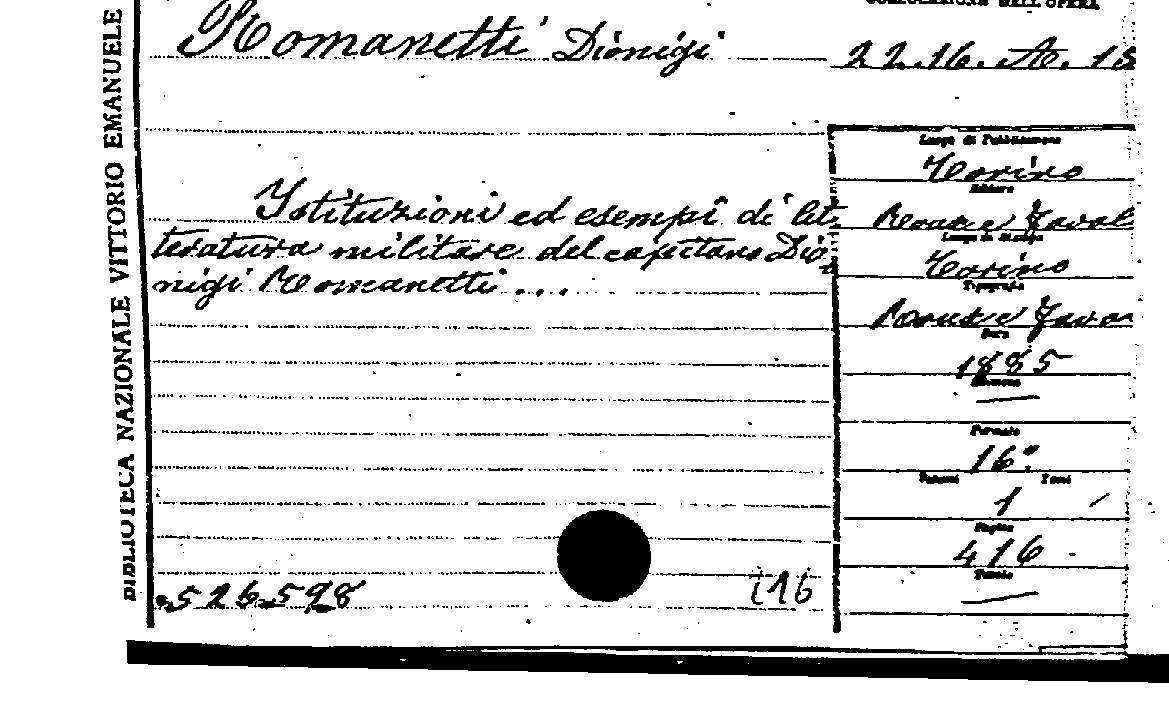 COLLOCAZIONE DELL'OPERA
Romanetti Dionigi
22.16.A.15
BIBLIOTECA NAZIONALE VITTORIO EMANUELE
Istituzioni ed esempi di let
teratura militare del capitano Dio
nigi Romanetti...
Luogo di Pubblicazione
Torino
Editore
Roux e Favale
Luogo di Stampa
Torino
Tipografia
Roux e Fava
Data
1885
Formato
16°
Volumi Tomi
1
Pagine
416
Tavole
526598
i16